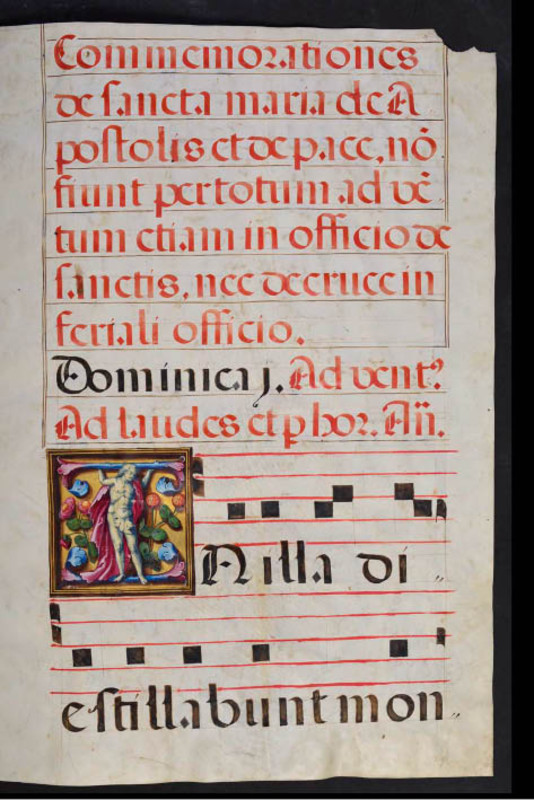 Commemorationes
de sancta maria de A
postolis et de pace, nō
fiunt per totum ad vē
tum etiam in officio de
sanctis, nec de cruce in
feriali officio.
Dominica j. Ad vent⁹.
Ad laudes et p hor. Añ.
IN illa di
e stillabunt mon